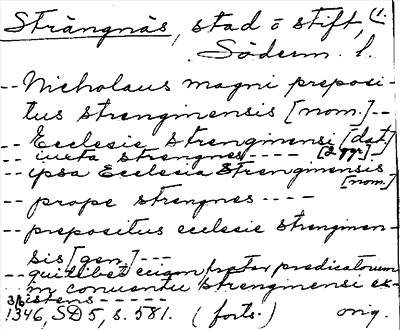 Strängnäs, stad o stift, (1.
Söderm. l.
-- Nicholaus magni preposi-
tus strenginensis [nom.] --
-- Ecclesie strenginensi [dat.]
-- iuxta strengnes ---- [2 ggr] --
-- ipsa Ecclesia Strenginensis
[nom.]
-- prope strengnes ----
-- prepositus ecclesie strenginen-
sis [gen.] ---
-- quilibet frater predicatorum
in conuentu strenginensi ex-
istens -----
3/6
1346, SD 5, s. 581. (forts.) orig.